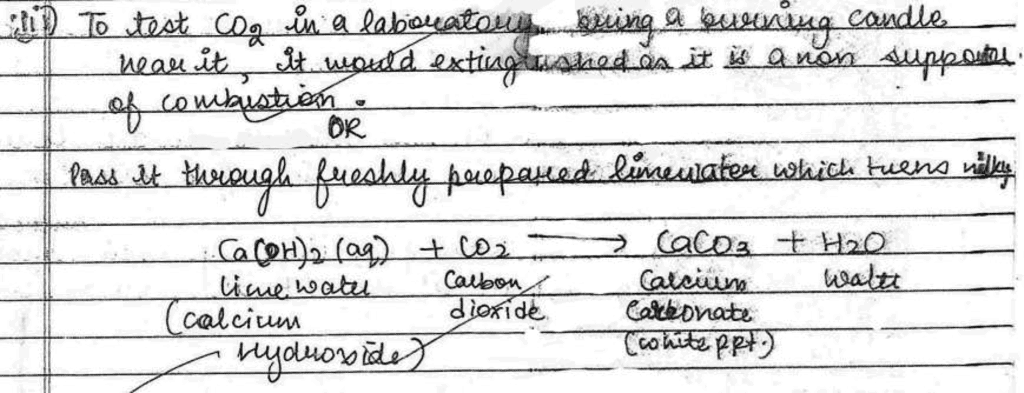 iii) To test CO2 in a laboratory bring a burning candle
near it, it would extinguished as it is a non supporter
of combustion.
OR
Pass it through freshly prepared limewater which turns milky
Ca(OH)2 (aq) + CO2 → CaCO3 + H2O
lime water Carbon Calcium water
(calcium dioxide Carbonate
Hydroxide) (white ppt.)